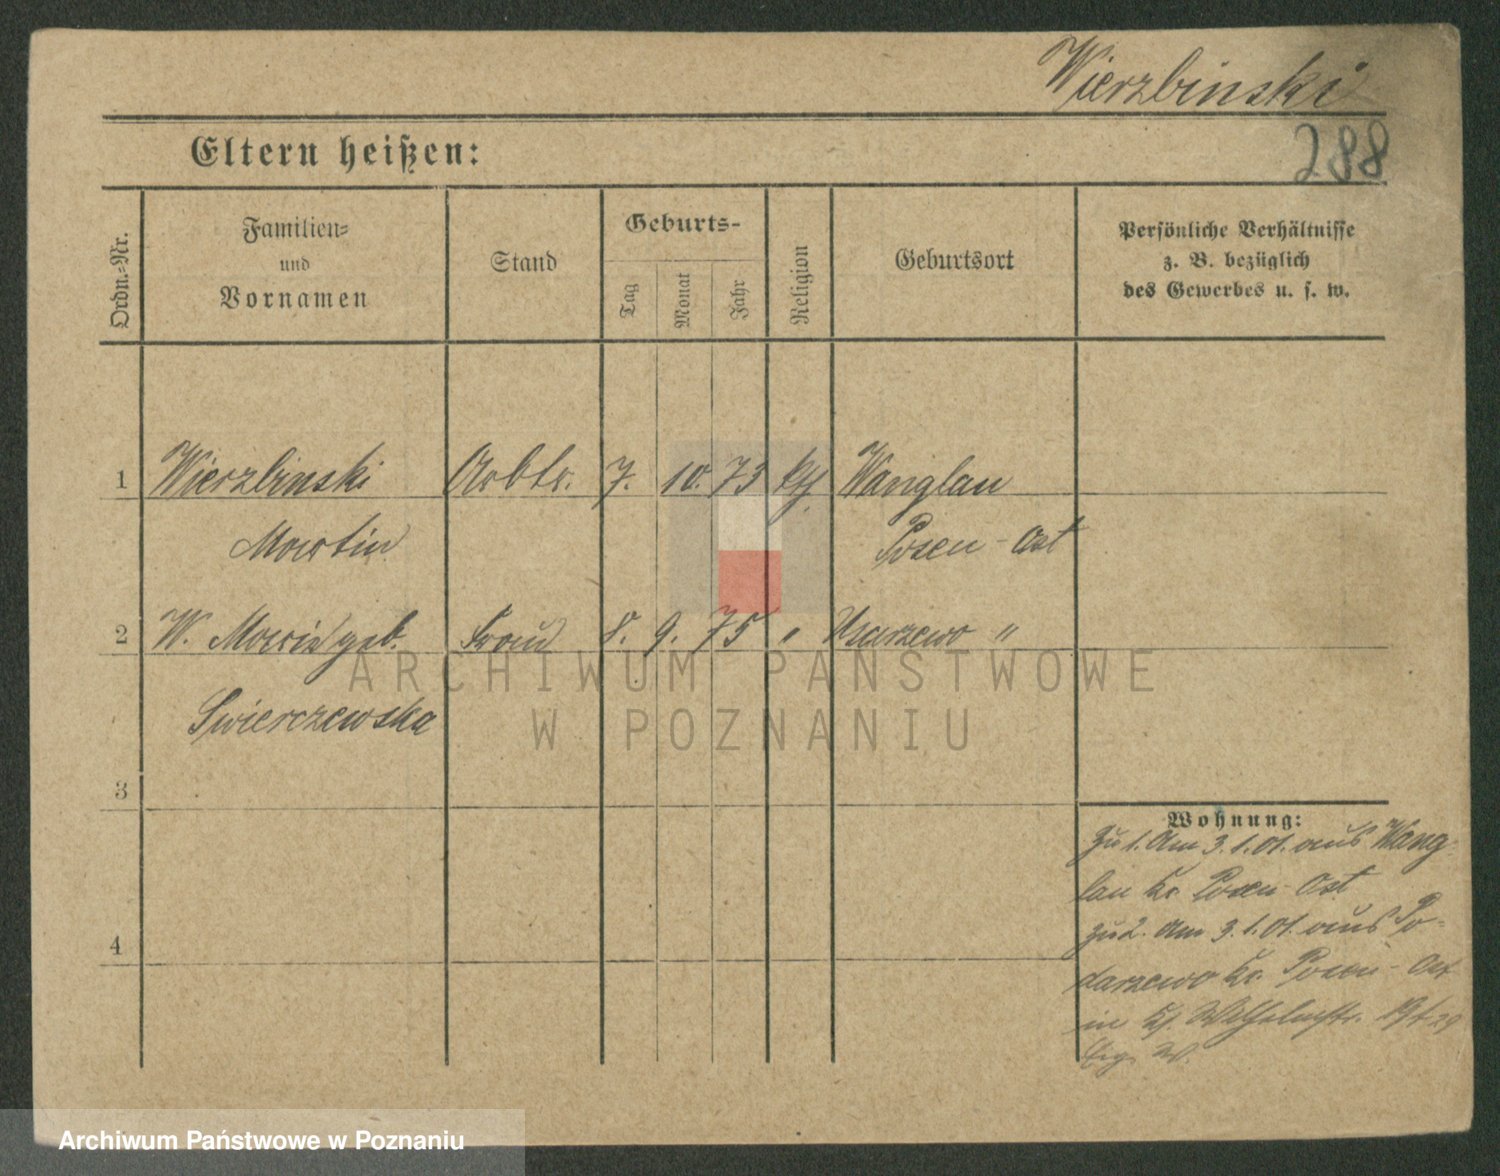 Wierzbinski
Eltern heißen:
288
Ordn.-Nr.
Familien-
und
Vornamen
Stand
Geburts-
Tag
Monat
Jahr
Religion
Geburtsort
Persönliche Verhältnisse
z. B. bezüglich
des Gewerbes u. s. w.
1 Wierzbinski Arbtr. 7. 10. 73 kth Wanglau
Martin Posen-Ost
2 W. Maria geb. Frau 8. 9. 75 "
Swierczewska
ARCHIWUM PAŃSTWOWE
W POZNANIU
3
4
Wohnung:
Zu 1. Am 3.1.01. aus Wang
lau Kr. Posen-Ost
zu 2. Am 3.1.01. aus Po-
darzewo Kr. Posen-Ost
in
Archiwum Państwowe w Poznaniu